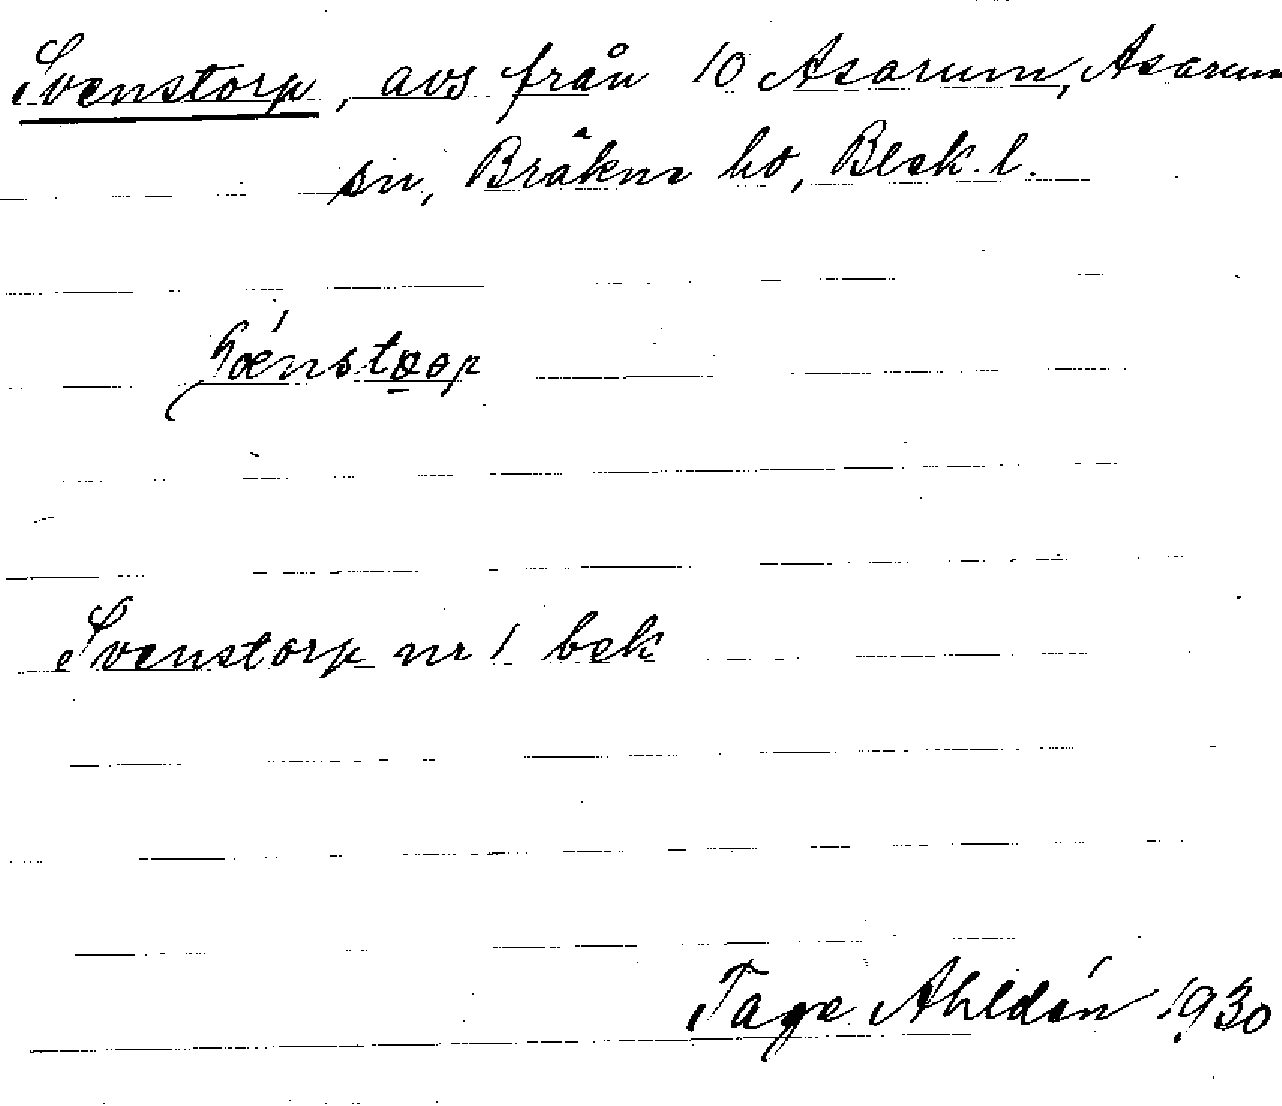 Svenstorp, avs från 10 Asarum, Asarum
sn, Bräkne hd, Blek. l.
Svenstorp nr 1 bek
Tage Ahldén 1930